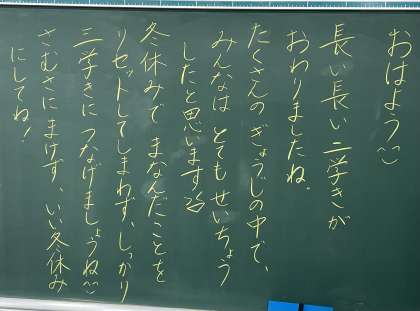 おはよう
長い長い二学きが
おわりましたね。
たくさんのぎょうじの中で、
みんなは とても せいちょう
したと思います
冬休みで まなんだことを
リセットしてしまわず、しっかり
三学きに つなげましょうね
さむさに まけず、いい冬休み
にしてね!